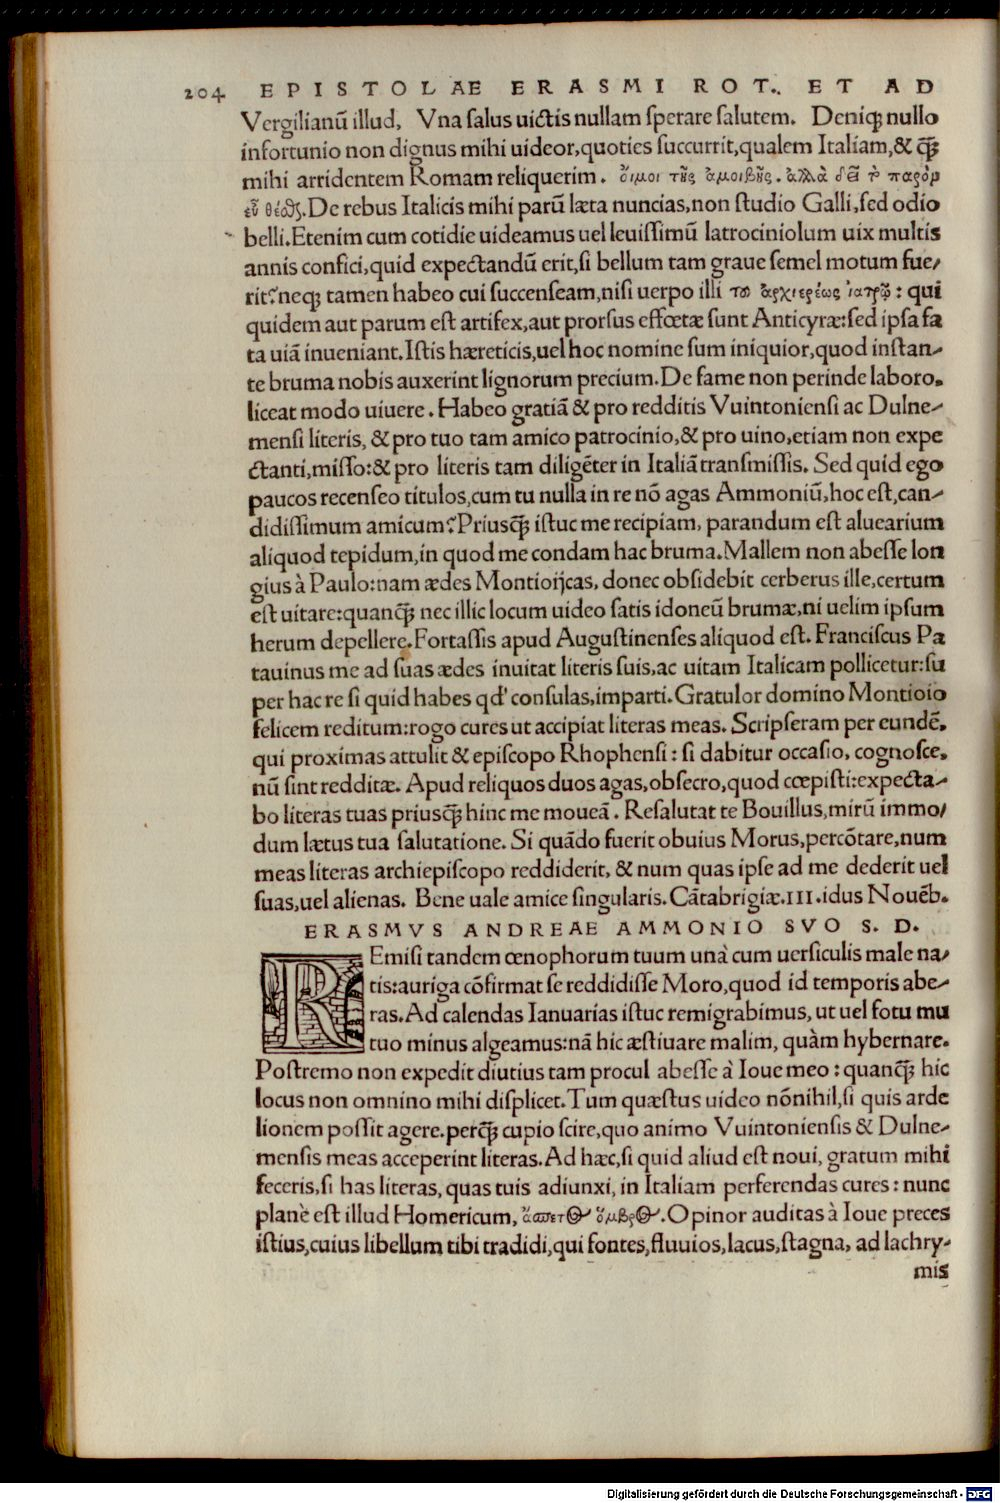 204 EPISTOLAE ERASMI ROT. ET AD
Vergilianũ illud, Vna salus uictis nullam sperare salutem. Deniq; nullo
infortunio non dignus mihi uideor, quoties succurrit, qualem Italiam, & q̃;
mihi arridentem Romam reliquerim. οἴμοι τῆς ἀμοιβῆς. ἀλλὰ δεῖ τὸ παρὸν
εὖ θέσθαι. De rebus Italicis mihi parũ læta nuncias, non studio Galli, sed odio
belli. Etenim cum cotidie uideamus uel leuissimũ latrociniolum uix multis
annis confici, quid expectandũ erit, si bellum tam graue semel motum fue/
rit? neq; tamen habeo cui succenseam, nisi uerpo illi τοῦ ἀρχιερέως ἰατρῷ: qui
quidem aut parum est artifex, aut prorsus effœtæ sunt Anticyræ: sed ipsa fa
ta uiã inueniant. Istis hæreticis, uel hoc nomine sum iniquior, quod instan-
te bruma nobis auxerint lignorum precium. De fame non perinde laboro,
liceat modo uiuere. Habeo gratiã & pro redditis Vuintoniensi ac Dulne-
mensi literis, & pro tuo tam amico patrocinio, & pro uino, etiam non expe
ctanti, misso: & pro literis tam diligẽter in Italiã transmissis. Sed quid ego
paucos recenseo titulos, cum tu nulla in re nõ agas Ammoniũ, hoc est, can-
didissimum amicum? Priusq̃; istuc me recipiam, parandum est aluearium
aliquod tepidum, in quod me condam hac bruma. Mallem non abesse lon
gius à Paulo: nam ædes Montioijcas, donec obsidebit cerberus ille, certum
est uitare: quanq̃; nec illic locum uideo satis idoneũ brumæ, ni uelim ipsum
herum depellere. Fortassis apud Augustinenses aliquod est. Franciscus Pa
tauinus me ad suas ædes inuitat literis suis, ac uitam Italicam pollicetur: su
per hac re si quid habes qd' consulas, imparti. Gratulor domino Montioio
felicem reditum: rogo cures ut accipiat literas meas. Scripseram per eundẽ,
qui proximas attulit & episcopo Rhophensi: si dabitur occasio, cognosce,
nũ sint redditæ. Apud reliquos duos agas, obsecro, quod cœpisti: expecta-
bo literas tuas priusq̃; hinc me moueã. Resalutat te Bouillus, mirũ immo/
dum lætus tua salutatione. Si quãdo fuerit obuius Morus, percõtare, num
meas literas archiepiscopo reddiderit, & num quas ipse ad me dederit uel
suas, uel alienas. Bene uale amice singularis. Cãtabrigiæ. III. idus Nouẽb.
ERASMVS ANDREAE AMMONIO SVO S. D.
REmisi tandem œnophorum tuum unà cum uersiculis male na/
tis: auriga cõfirmat se reddidisse Moro, quod id temporis abe-
ras. Ad calendas Ianuarias istuc remigrabimus, ut uel fotu mu
tuo minus algeamus: nã hic æstiuare malim, quàm hybernare.
Postremo non expedit diutius tam procul abesse à Ioue meo: quanq̃; hic
locus non omnino mihi displicet. Tum quæstus uideo nõnihil, si quis arde
lionem possit agere. perq̃; cupio scire, quo animo Vuintoniensis & Dulne-
mensis meas acceperint literas. Ad hæc, si quid aliud est noui, gratum mihi
feceris, si has literas, quas tuis adiunxi, in Italiam perferendas cures: nunc
planè est illud Homericum, ἄασπετος ὄμβρος. Opinor auditas à Ioue preces
istius, cuius libellum tibi tradidi, qui fontes, fluuios, lacus, stagna, ad lachry-
mis
Digitalisierung gefördert durch die Deutsche Forschungsgemeinschaft - DFG